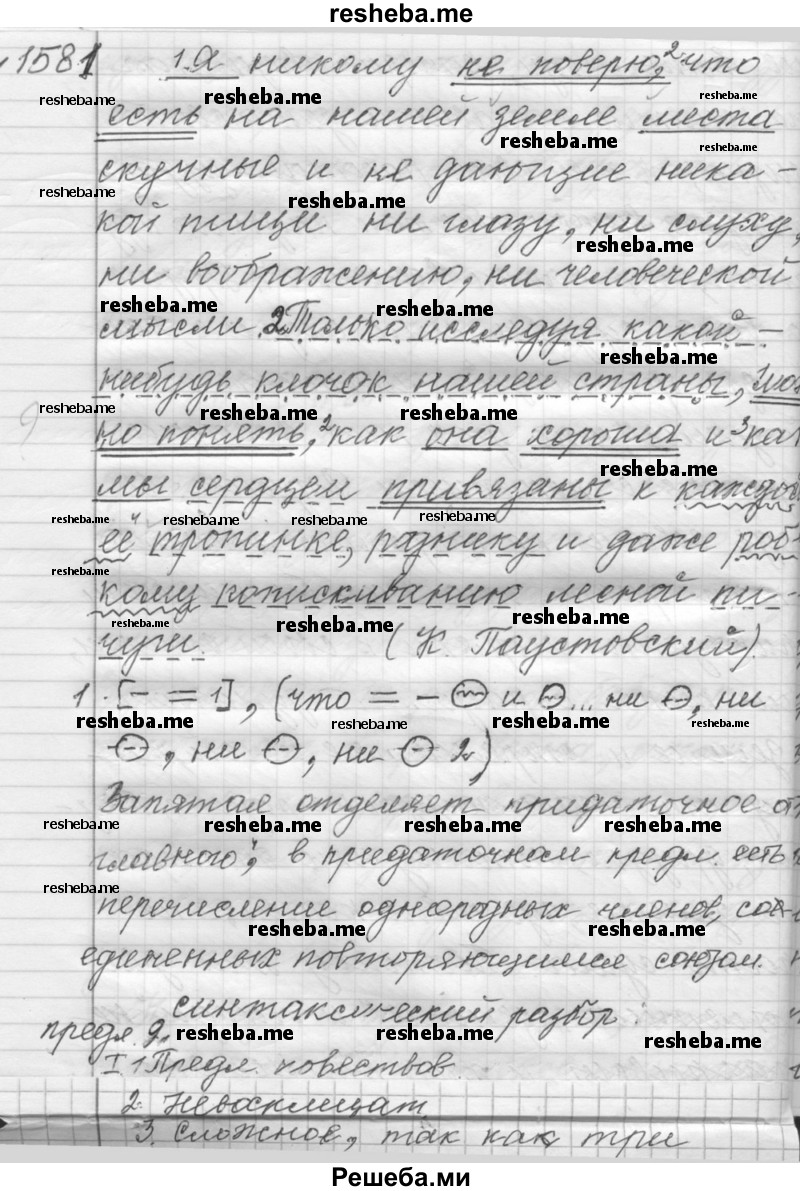 resheba.me
1581 1. Я никому не поверю, 2 что
есть на нашей земле места
скучные и не дающие ника-
кой пищи ни глазу, ни слуху,
ни воображению, ни человеческой
мысли. 2. Только исследуя какой-
нибудь клочок нашей страны, мож
но понять, 2 как она хороша и 3 как
мы сердцем привязаны к каждой
её тропинке, роднику и даже роб-
кому попискиванию лесной пи-
чуги. (К. Паустовский).
1. [- = 1], (что = - и ... ни, ни
, ни, ни 2.)
Запятая отделяет придаточное от
главного, в придаточном предл. есть
перечисление однородных членов, со-
единенных повторяющимся союзом.
синтаксический разбор:
предл. 2.
I 1 Предл. повествов.
2. Невосклицат.
3. Сложное, так как три
Решеба.ми